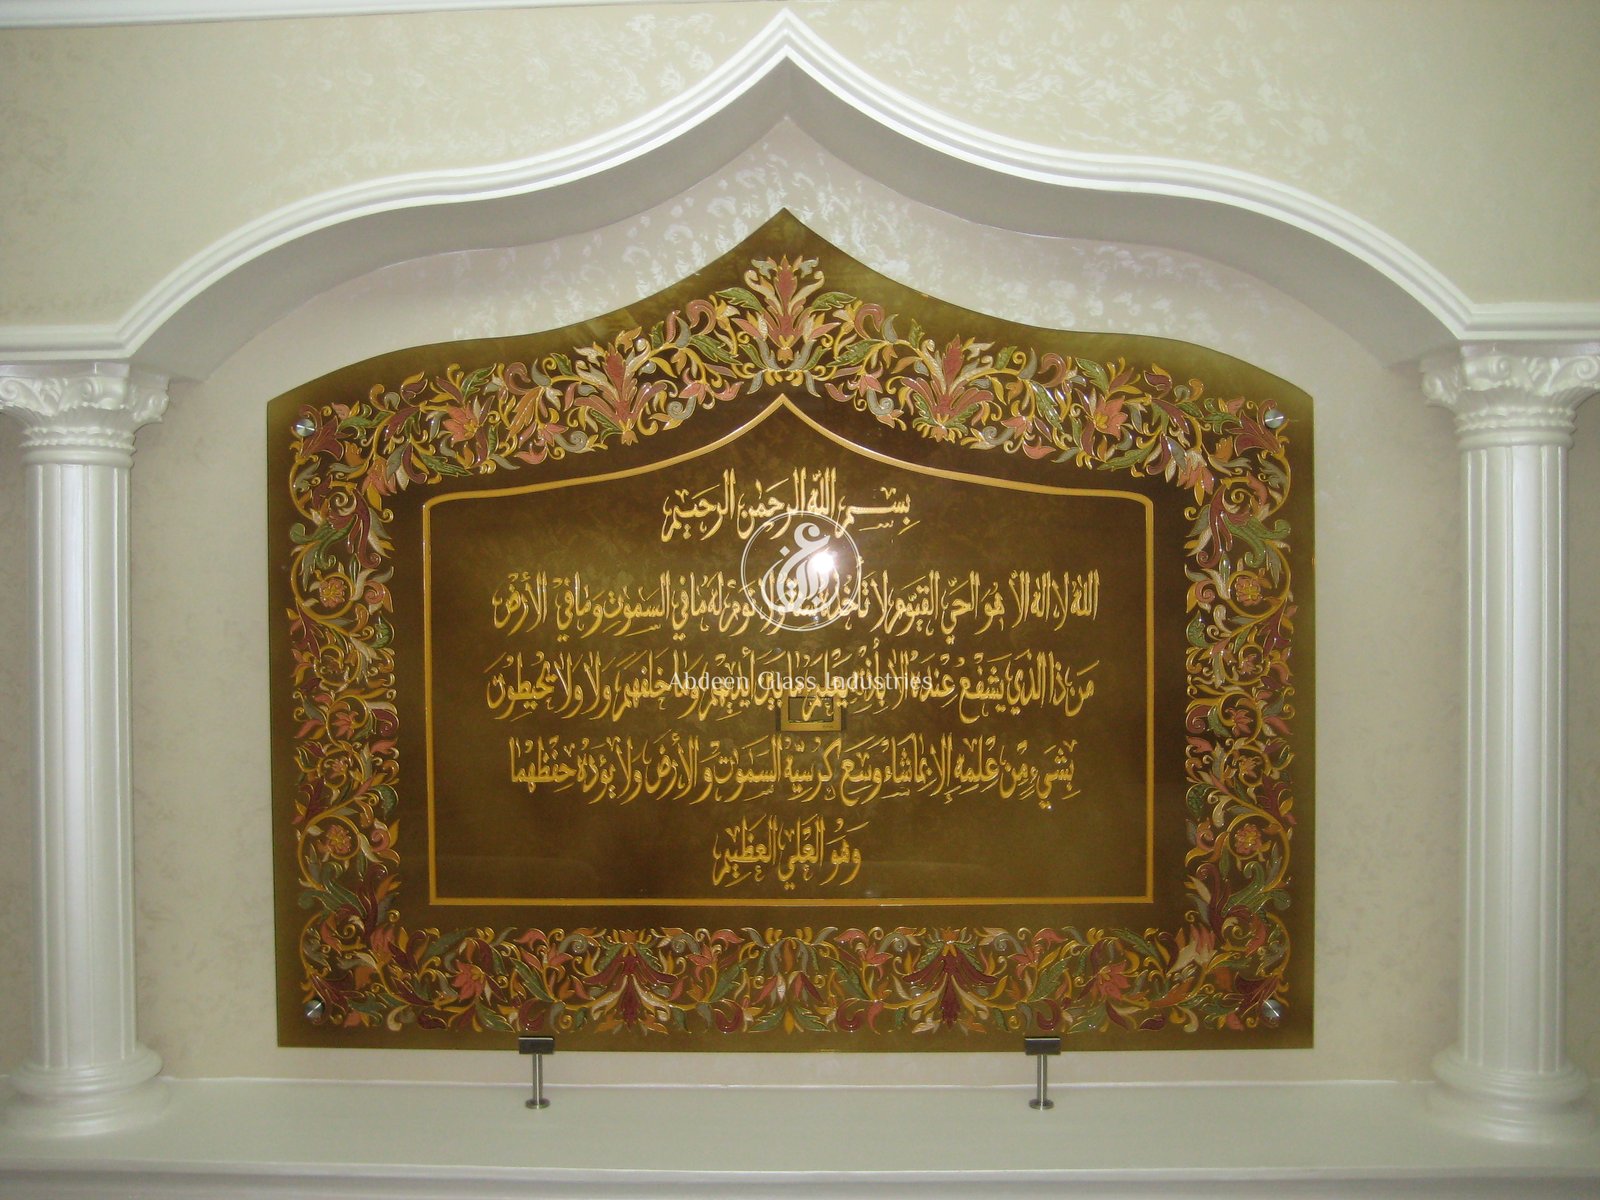 بسم الله الرحمن الرحيم
الله لا اله الا هو الحي القيوم لا تأخذه سنة ولا نوم له ما في السموت وما في الأرض
من ذا الذي يشفع عنده الا بأذنه يعلم ما بين أيديهم وما خلفهم ولا ولا تحيطون
Abdeen Glass Industries
بشيء من علمه إلا بما شاء وسع كرسيه السموت والأرض ولا يؤده حفظهما
وهو العلي العظيم